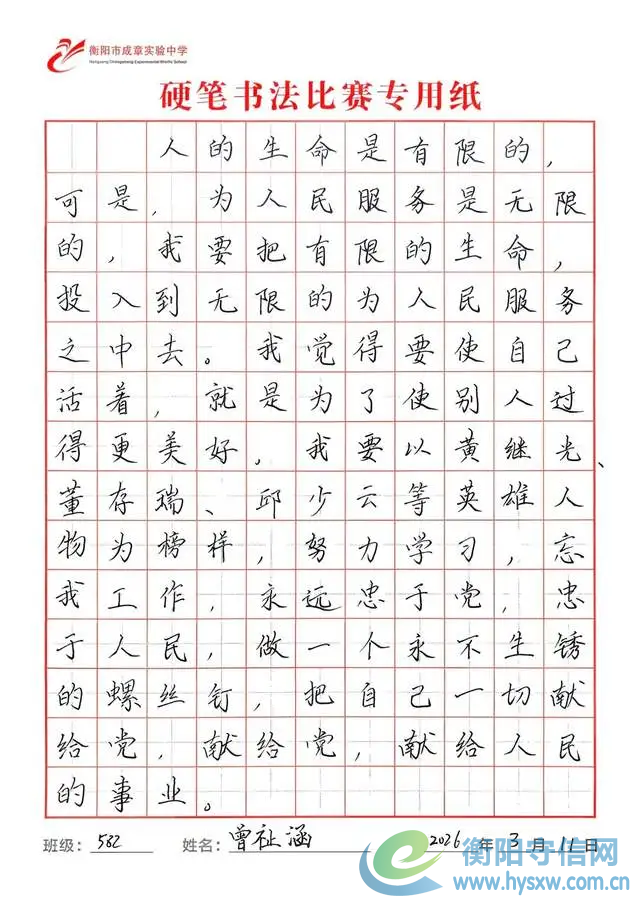 衡阳市成章实验中学
Hengyang Chengzhang Experimental Middle School
硬笔书法比赛专用纸
人的生命是有限的，
可是，为人民服务是无限
的，我要把有限的生命，
投入到无限的为人民服务
之中去。我觉得要使自己
活着，就是为了使别人过
得更美好。我要以黄继光、
董存瑞、邱少云等英雄人
物为榜样，努力学习，忘
我工作，永远忠于党，忠
于人民，做一个永不生锈
的螺丝钉，把自己一切献
给党，献给党，献给人民
的事业。
班级：582 姓名：曾祉涵 2026年3月11日
衡阳守信网
www.hysxw.com.cn